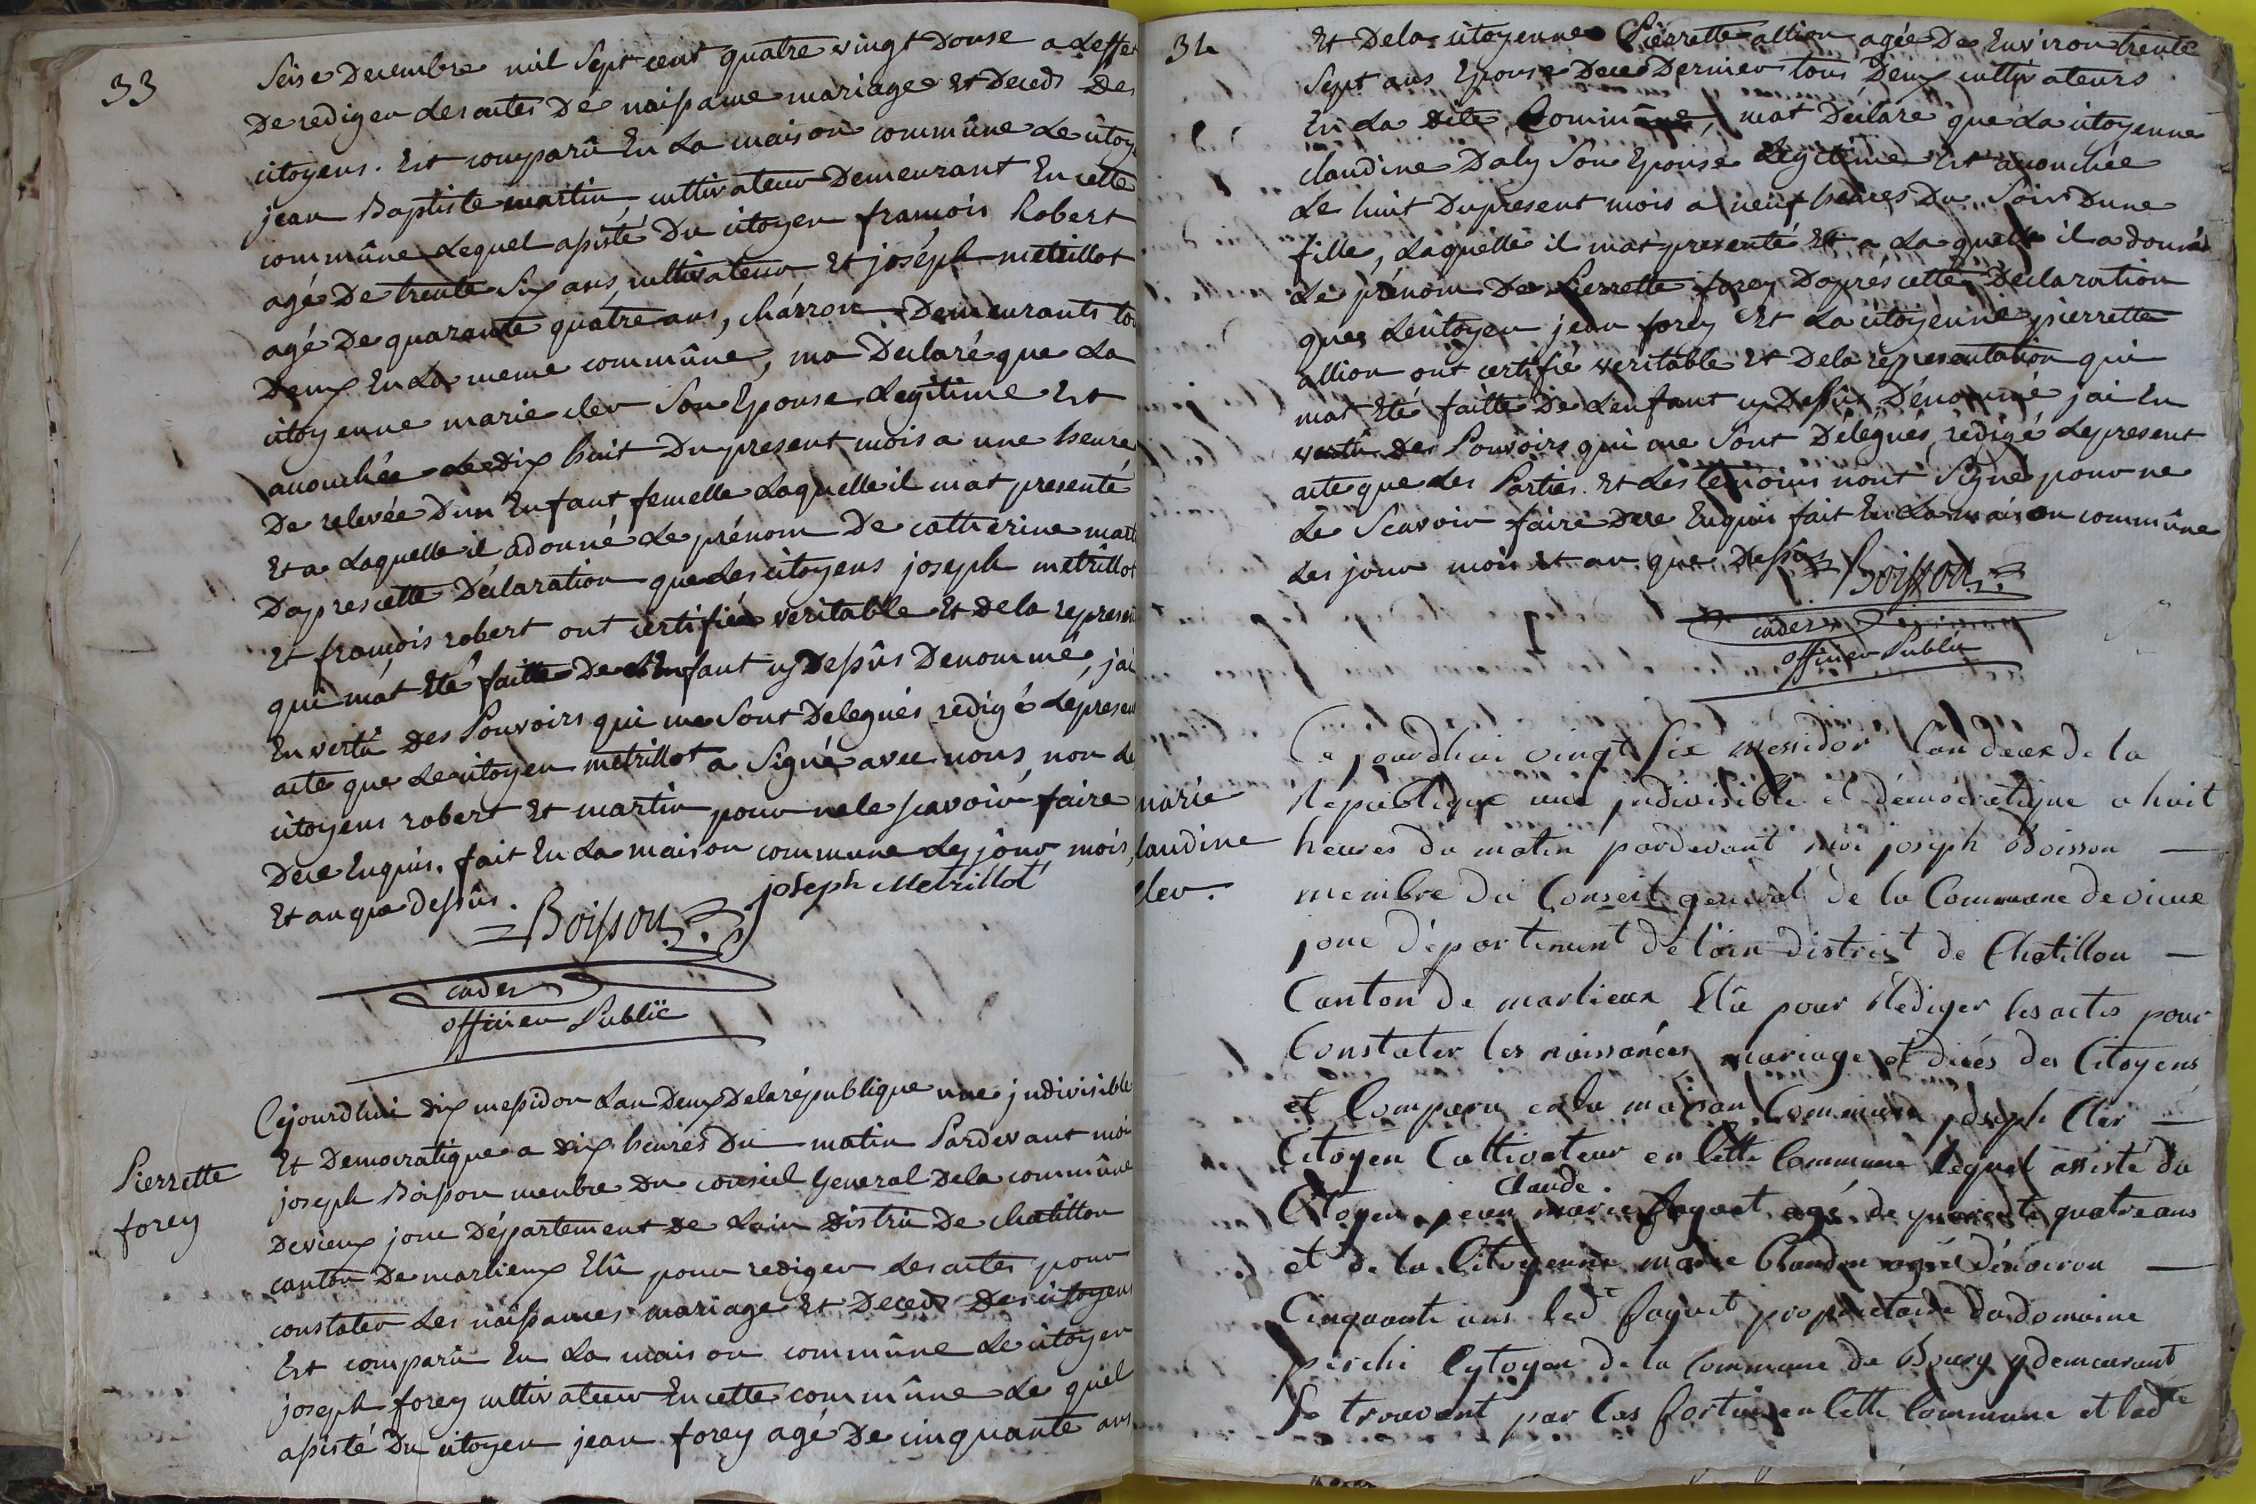 33
Seise Decembre mil Sept cent quatre vingt Douse a Leffet
De rediger Les actes De naissance mariage et Deceds Des
citoyens. Est comparû En La maison commûne Le citoy
jean Baptiste martin cultivateur Demeurant En cette
commûne Lequel assisté Du citoyen francois Robert
agé De trente Six ans, cultivateur Et joséph metrillot
agé De quarante quatre ans, chárron Demeurants to
Deux En La meme commûne, ma Declaré que La
citoyenne marie cler Son Epouse Legitime Est
accouchée Le dix huit Du present mois a une heure
De relevée Dun Enfant femelle Laquelle il mat presenté
Et a Laquelle il a donné Le prénom De catherine mart
Daprés cette Déclaration que Les citoyens joseph metrillot
Et francois robert ont certifiée veritable Et De la represen
qui m'at Eté faitte De L'Enfant cy Dessûs Denommé, j'ai
En vertû Des Pouvoirs qui me Sont Delegués redigé Le present
acte que Le citoyen metrillot a Signé avec nous, non Le
citoyens robert Et martin pour ne le scavoir faire
De ce Enquis. fait En La maison commune Les jour mois,
Et an que dessûs.
joseph Metrillot
Boisson
officier Public
Pierrette
forey
Cejourdhui dix messidor Lan Deux De la république une jndivisible
Et Democratique a dix heures Du matin Pardevant moi
joseph Boisson menbre Du conseil General De la commûne
De vieux jonc Département De Lain District De chatillon
canton De marlieux Elû pour rediger Les actes pour
constater Les naissances mariage Et Deceds Des citoyens
Est comparu En La maison commûne Le citoyen
joseph forey cultivateur En cette commûne Le quel
assisté Du citoyen jean forey agé De cinquante ans
34
Et De la citoyenne Pierrette allion agée De Environ trente
Sept ans Epouse De ce Dernier tous Deux cultivateurs
En La dite Commûne, mat Déclaré que La citoyenne
claudine Daly Son Epouse Legitime Est accouchée
Le huit Du present mois a neuf heures Du Soir Dune
fille, Laquelle il mat presenté Et a Laquelle il a donné
Le prénom De Pierrette forey Daprés cette Declaration
que Le citoyen jean forey Et La citoyenne pierrette
allion ont certifié veritable Et De la représentation qui
mat Eté faitte De Lenfant cy Dessûs Dénommé jai En
vertû des Pouvoirs qui me Sont Délegués, redigé Le present
acte que Les Parties Et Les temoins nont Signé pour ne
Le Scavoir faire De ce Enquis fait En La maison commûne
Les jour mois Et an que Dessûs
Boisson
officier Public
marie
laudine
cler.
Ce jourdhui vingt six messidor lan deux de la
République une jndivisible et démocratique a huit
heures du matin pardevant moi joseph Boisson
membre du Conseil general de la Commune de vieux
jonc département de l'ain district de Chatillon
Canton de marlieux Elû pour Rédiger les actes pour
Constater les naissances, mariage et décés des Citoyens
et Comparu en la maison Commune joseph Cler
Citoyen Cultivateur en Cette Commune lequel assisté du
Claude.
Citoyen jean marie faguet agé de quarente quatre ans
et de la Citoyenne marie agée dénviron
Cinquante ans led.t faguet propriétaire du domaine
perchi Cytoyen de la Commune de Bourg y demeurant
Se trouvant par Cas fortuit en Cette Commune et lad.te